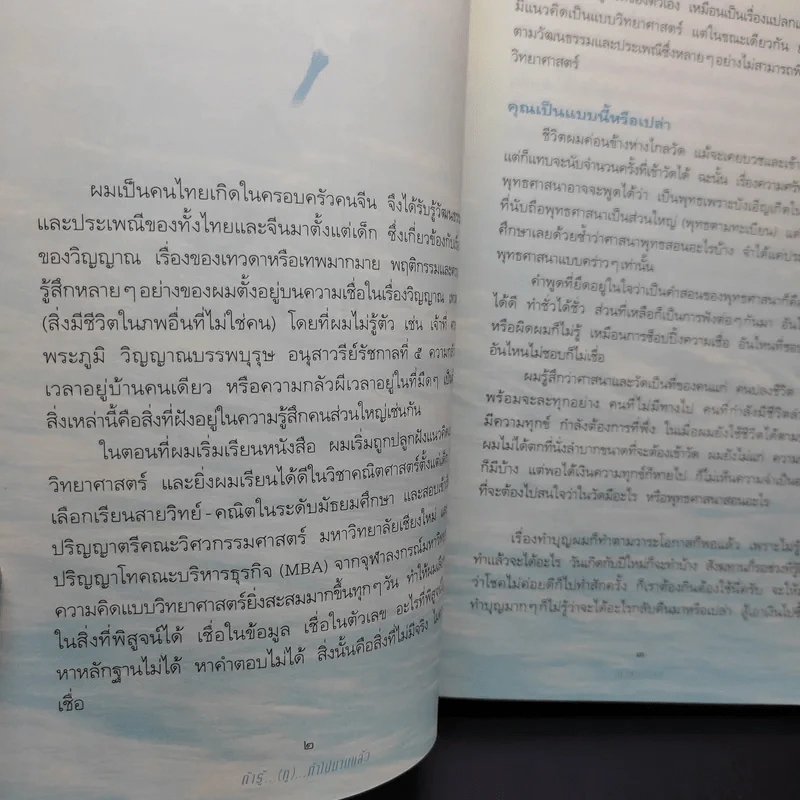 ผมเป็นคนไทยเกิดในครอบครัวคนจีน จึงได้รับรู้วัฒนธรรม
และประเพณีของทั้งไทยและจีนมาตั้งแต่เด็ก ซึ่งเกี่ยวข้องกับเรื่อง
ของวิญญาณ เรื่องของเทวดาหรือเทพมากมาย พฤติกรรมและความ
รู้สึกหลายๆอย่างของผมตั้งอยู่บนความเชื่อในเรื่องวิญญาณ เทวดา
(สิ่งมีชีวิตในภพอื่นที่ไม่ใช่คน) โดยที่ผมไม่รู้ตัว เช่น เจ้าที่ ศาล
พระภูมิ วิญญาณบรรพบุรุษ อนุสาวรีย์รัชกาลที่ ๕ ความกลัว
เวลาอยู่บ้านคนเดียว หรือความกลัวผีเวลาอยู่ในที่มืดๆ เป็นต้น
สิ่งเหล่านี้คือสิ่งที่ฝังอยู่ในความรู้สึกคนส่วนใหญ่เช่นกัน
ในตอนที่ผมเริ่มเรียนหนังสือ ผมเริ่มถูกปลูกฝังแนวคิดแบบ
วิทยาศาสตร์ และยิ่งผมเรียนได้ดีในวิชาคณิตศาสตร์ตั้งแต่เด็ก
เลือกเรียนสายวิทย์-คณิตในระดับมัธยมศึกษา และสอบเข้า
ปริญญาตรีคณะวิศวกรรมศาสตร์ มหาวิทยาลัยเชียงใหม่ และ
ปริญญาโทคณะบริหารธุรกิจ (MBA) จากจุฬาลงกรณ์มหาวิทยาลัย
ความคิดแบบวิทยาศาสตร์ยิ่งสะสมมากขึ้นทุกๆวัน ทำให้ผมเชื่อ
ในสิ่งที่พิสูจน์ได้ เชื่อในข้อมูล เชื่อในตัวเลข อะไรที่พิสูจน์
หาหลักฐานไม่ได้ หาคำตอบไม่ได้ สิ่งนั้นคือสิ่งที่ไม่มีจริง
เชื่อ
๒
ถ้ารู้...(กู)...ทำไปนานแล้ว
ของตัวเอง เหมือนเป็นเรื่องแปลก
มีแนวคิดเป็นแบบวิทยาศาสตร์ แต่ในขณะเดียวกัน
ตามวัฒนธรรมและประเพณีซึ่งหลายๆอย่างไม่สามารถ
วิทยาศาสตร์
คุณเป็นแบบนี้หรือเปล่า
ชีวิตผมค่อนข้างห่างไกลวัด แม้จะเคยบวชและเข้า
แต่ก็แทบจะนับจำนวนครั้งที่เข้าวัดได้ ฉะนั้น เรื่องความ
พุทธศาสนาอาจจะพูดได้ว่า เป็นพุทธเพราะบังเอิญเกิด
ที่นับถือพุทธศาสนาเป็นส่วนใหญ่ (พุทธตามทะเบียน)
ศึกษาเลยด้วยซ้ำว่าศาสนาพุทธสอนอะไรบ้าง จำได้แต่
พุทธศาสนาแบบคร่าวๆเท่านั้น
คำพูดที่ยึดอยู่ในใจว่าเป็นคำสอนของพุทธศาสนาก็คือ
ได้ดี ทำชั่วได้ชั่ว ส่วนที่เหลือก็เป็นการฟังต่อๆกันมา
หรือผิดผมก็ไม่รู้ เหมือนการช็อปปิ้งความเชื่อ อันไหนที่ชอบ
อันไหนไม่ชอบก็ไม่เชื่อ
ผมรู้สึกว่าศาสนาและวัดเป็นที่ของคนแก่ คนปลงชีวิต
พร้อมจะละทุกอย่าง คนที่ไม่มีทางไป คนที่กำลังมีชีวิต
มีความทุกข์ กำลังต้องการที่พึ่ง ในเมื่อผมยังใช้ชีวิตได้ตาม
ผมไม่ได้ตกที่นั่งลำบากขนาดที่จะต้องเข้าวัด ผมยังไม่แก่
ก็มีบ้าง แต่พอได้เงินความทุกข์ก็หายไป ก็ไม่เห็นความจำเป็น
ที่จะต้องไปสนใจว่าในวัดมีอะไร หรือพุทธศาสนาสอนอะไร
เรื่องทำบุญผมก็ทำตามวาระโอกาสก็พอแล้ว เพราะไม่รู้
ทำแล้วจะได้อะไร วันเกิดกับปีใหม่ก็จะทำบ้าง
ว่าโชคไม่ค่อยดีก็ไปทำสักครั้ง ก็เราต้องกินต้องใช้นี่ครับ
ทำบุญมากๆก็ไม่รู้ว่าจะได้อะไรกลับคืนมาหรือเปล่า สู้เอาเงินไป
๓